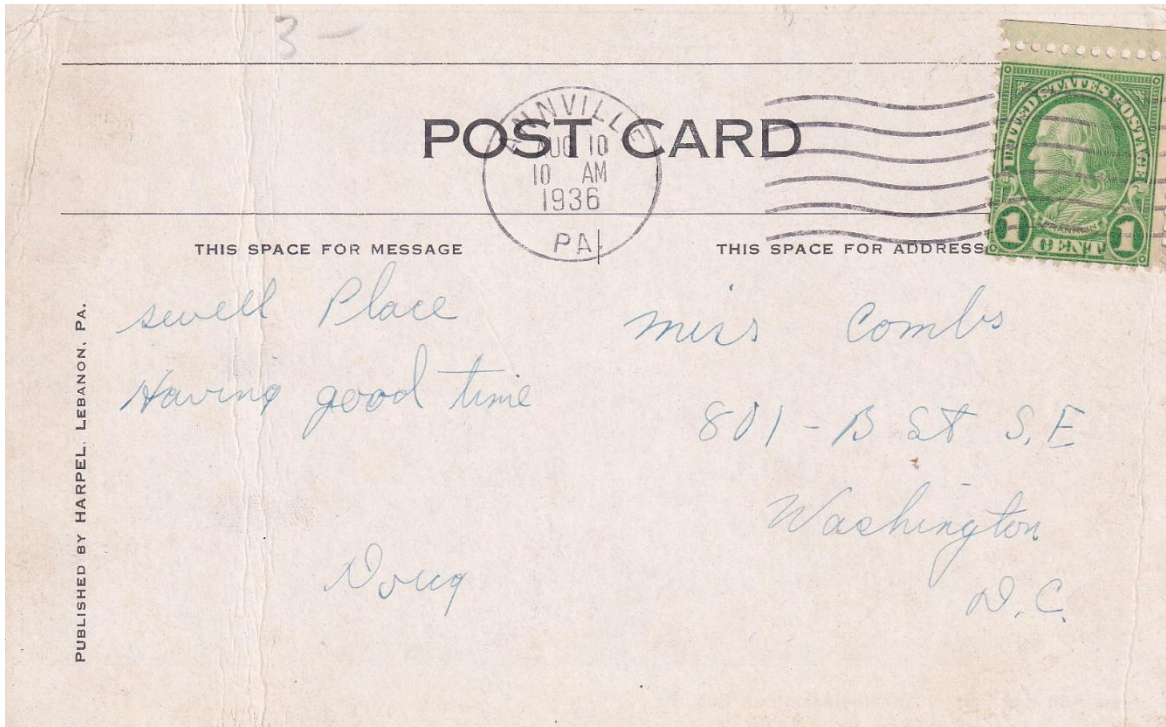 3 –
POST CARD
ANNVILLE
AUG 10
10 AM
1936
PA.
UNITED STATES POSTAGE
FRANKLIN
1 CENT 1
THIS SPACE FOR MESSAGE
THIS SPACE FOR ADDRESS
PUBLISHED BY HARPEL, LEBANON, PA.
swell Place
Having good time
Doug
Miss Combs
801 - B St S.E
Washington
D.C.